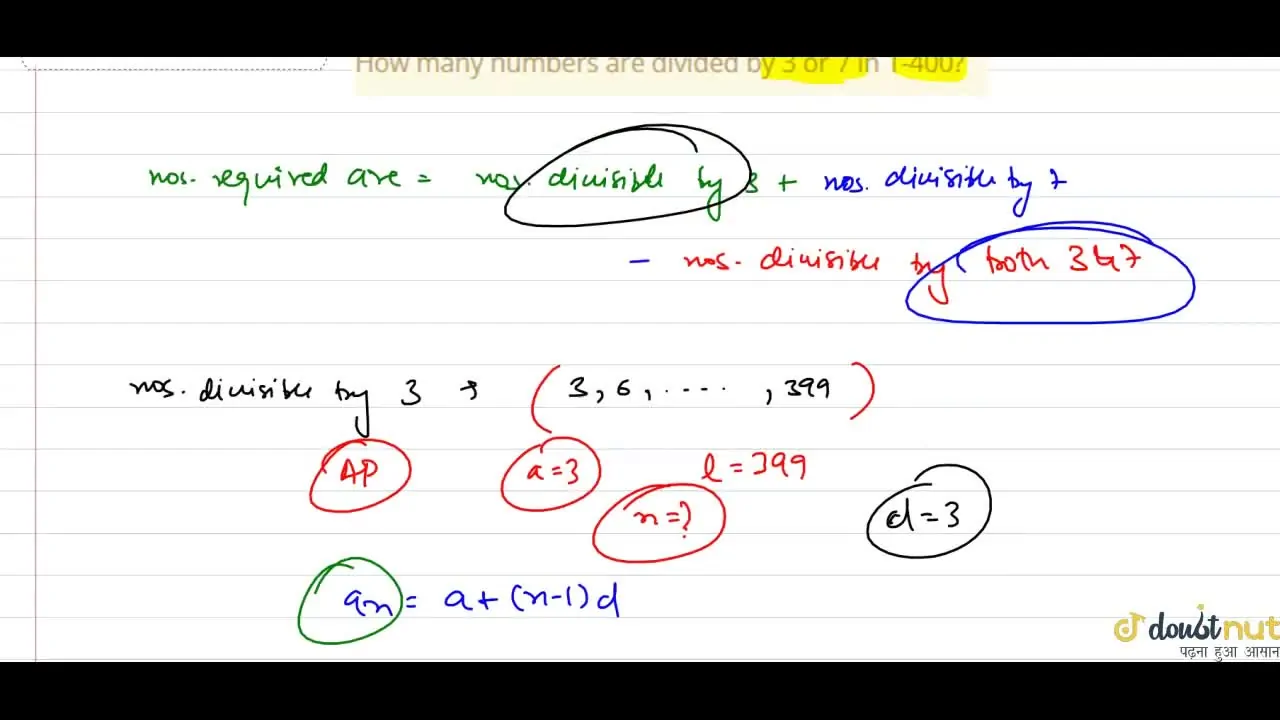 How many numbers are divided by 3 or 7 in 1-400?
nos. required are = nos. divisible by 3 + nos. divisible by 7
- nos. divisible by both 3 & 7
nos. divisible by 3 → (3, 6, ...., 399)
AP a=3 l=399
n=? d=3
an = a+(n-1)d
doubtnut
पढ़ना हुआ आसान